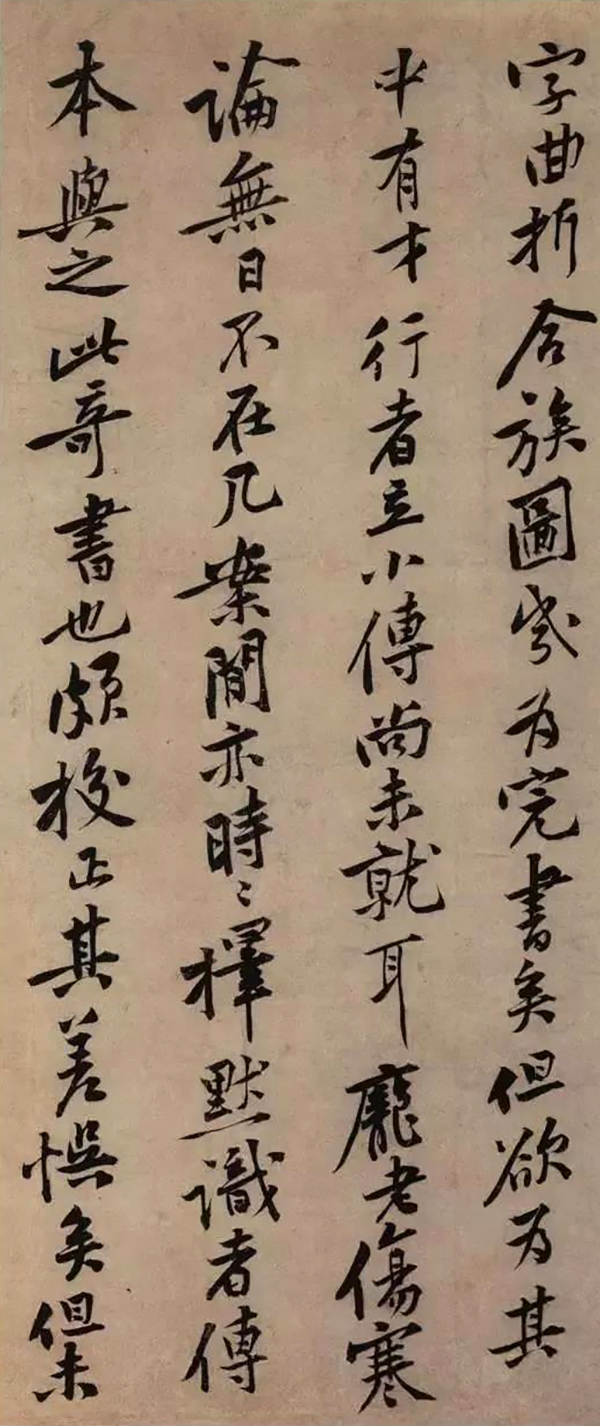 字曲折合族圖岁为完書矣但欲为其
中有才行者立小傳尚未就耳龐老傷寒
論無日不在几案間亦時〻擇默識者傳
本與之此奇書也頗挍正其差悮矣但未